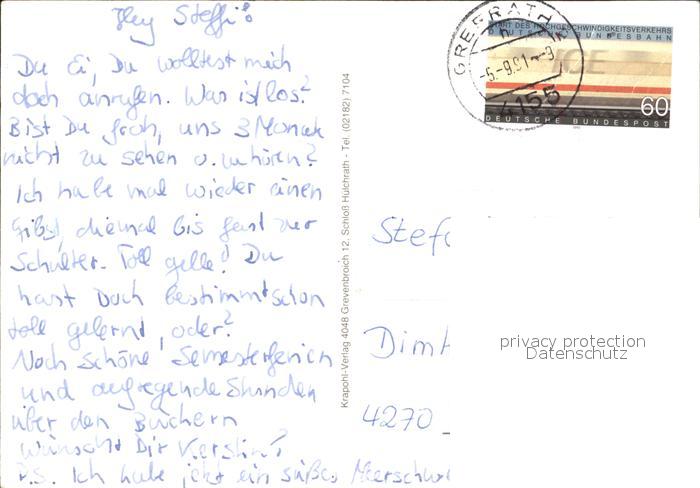 Hey Steffi!
Du Ei, Du wolltest mich
doch anrufen. Was ist los?
Bist Du froh, uns 3 Monate
nicht zu sehen o. zu hören?
Ich habe mal wieder einen
Gibs, diemal bis fast zur
Schulter. Toll gelle! Du
hast Doch bestimmt schon
toll gelernt, oder?
Noch schöne Semesterferien
und aufregende Stunden
über den Büchern
wünscht Dir Kerstin!
P.S. Ich habe jetzt ein süßes Meerschw
Krapohl-Verlag 4048 Grevenbroich 12, Schloß Hülchrath - Tel. (02182) 7104
GREFRATH
-6.-9.91--9
4155
START DES HOCHGESCHWINDIGKEITSVERKEHRS
DEUTSCHE BUNDESBAHN
ICE
60
DEUTSCHE BUNDESPOST
Stef
Dim
4270
privacy protection
Datenschutz